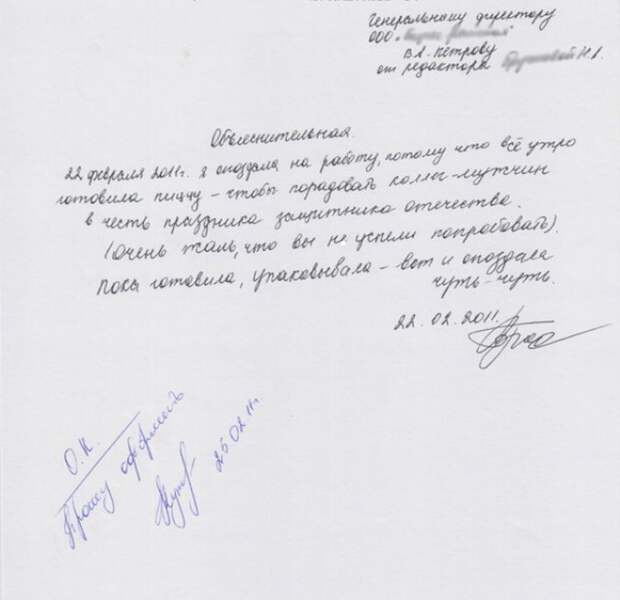 Генеральному директору
ООО "
В.А. Петрову
от редактора Н.А.
Объяснительная.
22 февраля 2011г. я опоздала на работу, потому что всё утро
готовила пиццу - чтобы порадовать коллег-мужчин
в честь праздника защитника отечества.
(очень жаль, что вы не успели попробовать).
Пока готовила, упаковывала - вот и опоздала
чуть-чуть.
22.02.2011.
О.К.
Прошу оформить
25 02 11г.